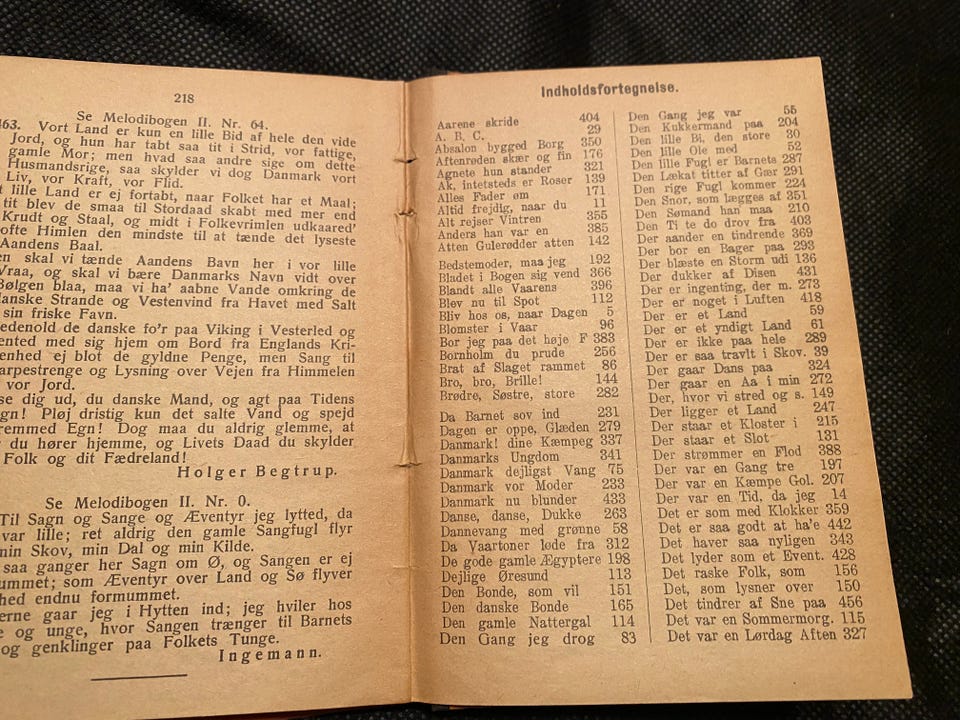 218
Se Melodibogen II. Nr. 64.
463. Vort Land er kun en lille Bid af hele den vide
Jord, og hun har tabt saa tit i Strid, vor fattige,
gamle Mor; men hvad saa andre sige om dette
Husmandsrige, saa skylder vi dog Danmark vort
Liv, vor Kraft, vor Flid.
t lille Land er ej fortabt, naar Folket har et Maal;
tit blev de smaa til Stordaad skabt med mer end
Krudt og Staal, og midt i Folkevrimlen udkaared'
ofte Himlen den mindste til at tænde det lyseste
Aandens Baal.
en skal vi tænde Aandens Bavn her i vor lille
Vraa, og skal vi bære Danmarks Navn vidt over
Bølgen blaa, maa vi ha' aabne Vande omkring de
danske Strande og Vestenvind fra Havet med Salt
sin friske Favn.
edenold de danske fo'r paa Viking i Vesterled og
ented med sig hjem om Bord fra Englands Kri-
enhed ej blot de gyldne Penge, men Sang til
arpestrenge og Lysning over Vejen fra Himmelen
vor Jord.
se dig ud, du danske Mand, og agt paa Tidens
gn! Pløj dristig kun det salte Vand og spejd
remmed Egn! Dog maa du aldrig glemme, at
du hører hjemme, og Livets Daad du skylder
Folk og dit Fædreland!
Holger Begtrup.
Se Melodibogen II. Nr. 0.
Til Sagn og Sange og Æventyr jeg lytted, da
var lille; ret aldrig den gamle Sangfugl flyr
min Skov, min Dal og min Kilde.
saa ganger her Sagn om Ø, og Sangen er ej
ummet; som Æventyr over Land og Sø flyver
hed endnu formummet.
erne gaar jeg i Hytten ind; jeg hviler hos
e og unge, hvor Sangen trænger til Barnets
og genklinger paa Folkets Tunge.
Ingemann.
Indholdsfortegnelse.
Aarene skride 404
A. B. C. 29
Absalon bygged Borg 350
Aftenrøden skær og fin 176
Agnete hun stander 321
Ak, intetsteds er Roser 139
Alles Fader om 171
Altid frejdig, naar du 11
Alt rejser Vintren 355
Anders han var en 385
Atten Gulerødder atten 142
Bedstemoder, maa jeg 192
Bladet i Bogen sig vend 366
Blandt alle Vaarens 396
Blev nu til Spot 112
Bliv hos os, naar Dagen 5
Blomster i Vaar 96
Bor jeg paa det høje F 383
Bornholm du prude 256
Brat af Slaget rammet 86
Bro, bro, Brille! 144
Brødre, Søstre, store 282
Da Barnet sov ind 231
Dagen er oppe, Glæden 279
Danmark! dine Kæmpeg 337
Danmarks Ungdom 341
Danmark dejligst Vang 75
Danmark vor Moder 233
Danmark nu blunder 433
Danse, danse, Dukke 263
Dannevang med grønne 58
Da Vaartoner løde fra 312
De gode gamle Ægyptere 198
Dejlige Øresund 113
Den Bonde, som vil 151
Den danske Bonde 165
Den gamle Nattergal 114
Den Gang jeg drog 83
Den Gang jeg var 55
Den Kukkermand paa 204
Den lille Bi, den store 30
Den lille Ole med 52
Den lille Fugl er Barnets 287
Den Lækat titter af Gær 291
Den rige Fugl kommer 224
Den Snor, som lægges af 351
Den Sømand han maa 210
Den Ti te do drov fra 403
Der aander en tindrende 369
Der bor en Bager paa 293
Der blæste en Storm udi 136
Der dukker af Disen 431
Der er ingenting, der m. 273
Der er noget i Luften 418
Der er et Land 59
Der er et yndigt Land 61
Der er ikke paa hele 289
Der er saa travlt i Skov. 39
Der gaar Dans paa 324
Der gaar en Aa i min 272
Der, hvor vi stred og s. 149
Der ligger et Land 247
Der staar et Kloster i 215
Der staar et Slot 131
Der strømmer en Flod 388
Der var en Gang tre 197
Der var en Kæmpe Gol. 207
Der var en Tid, da jeg 14
Det er som med Klokker 359
Det er saa godt at ha'e 442
Det haver saa nyligen 343
Det lyder som et Event. 428
Det raske Folk, som 156
Det, som lysner over 150
Det tindrer af Sne paa 456
Det var en Sommermorg. 115
Det var en Lørdag Aften 327